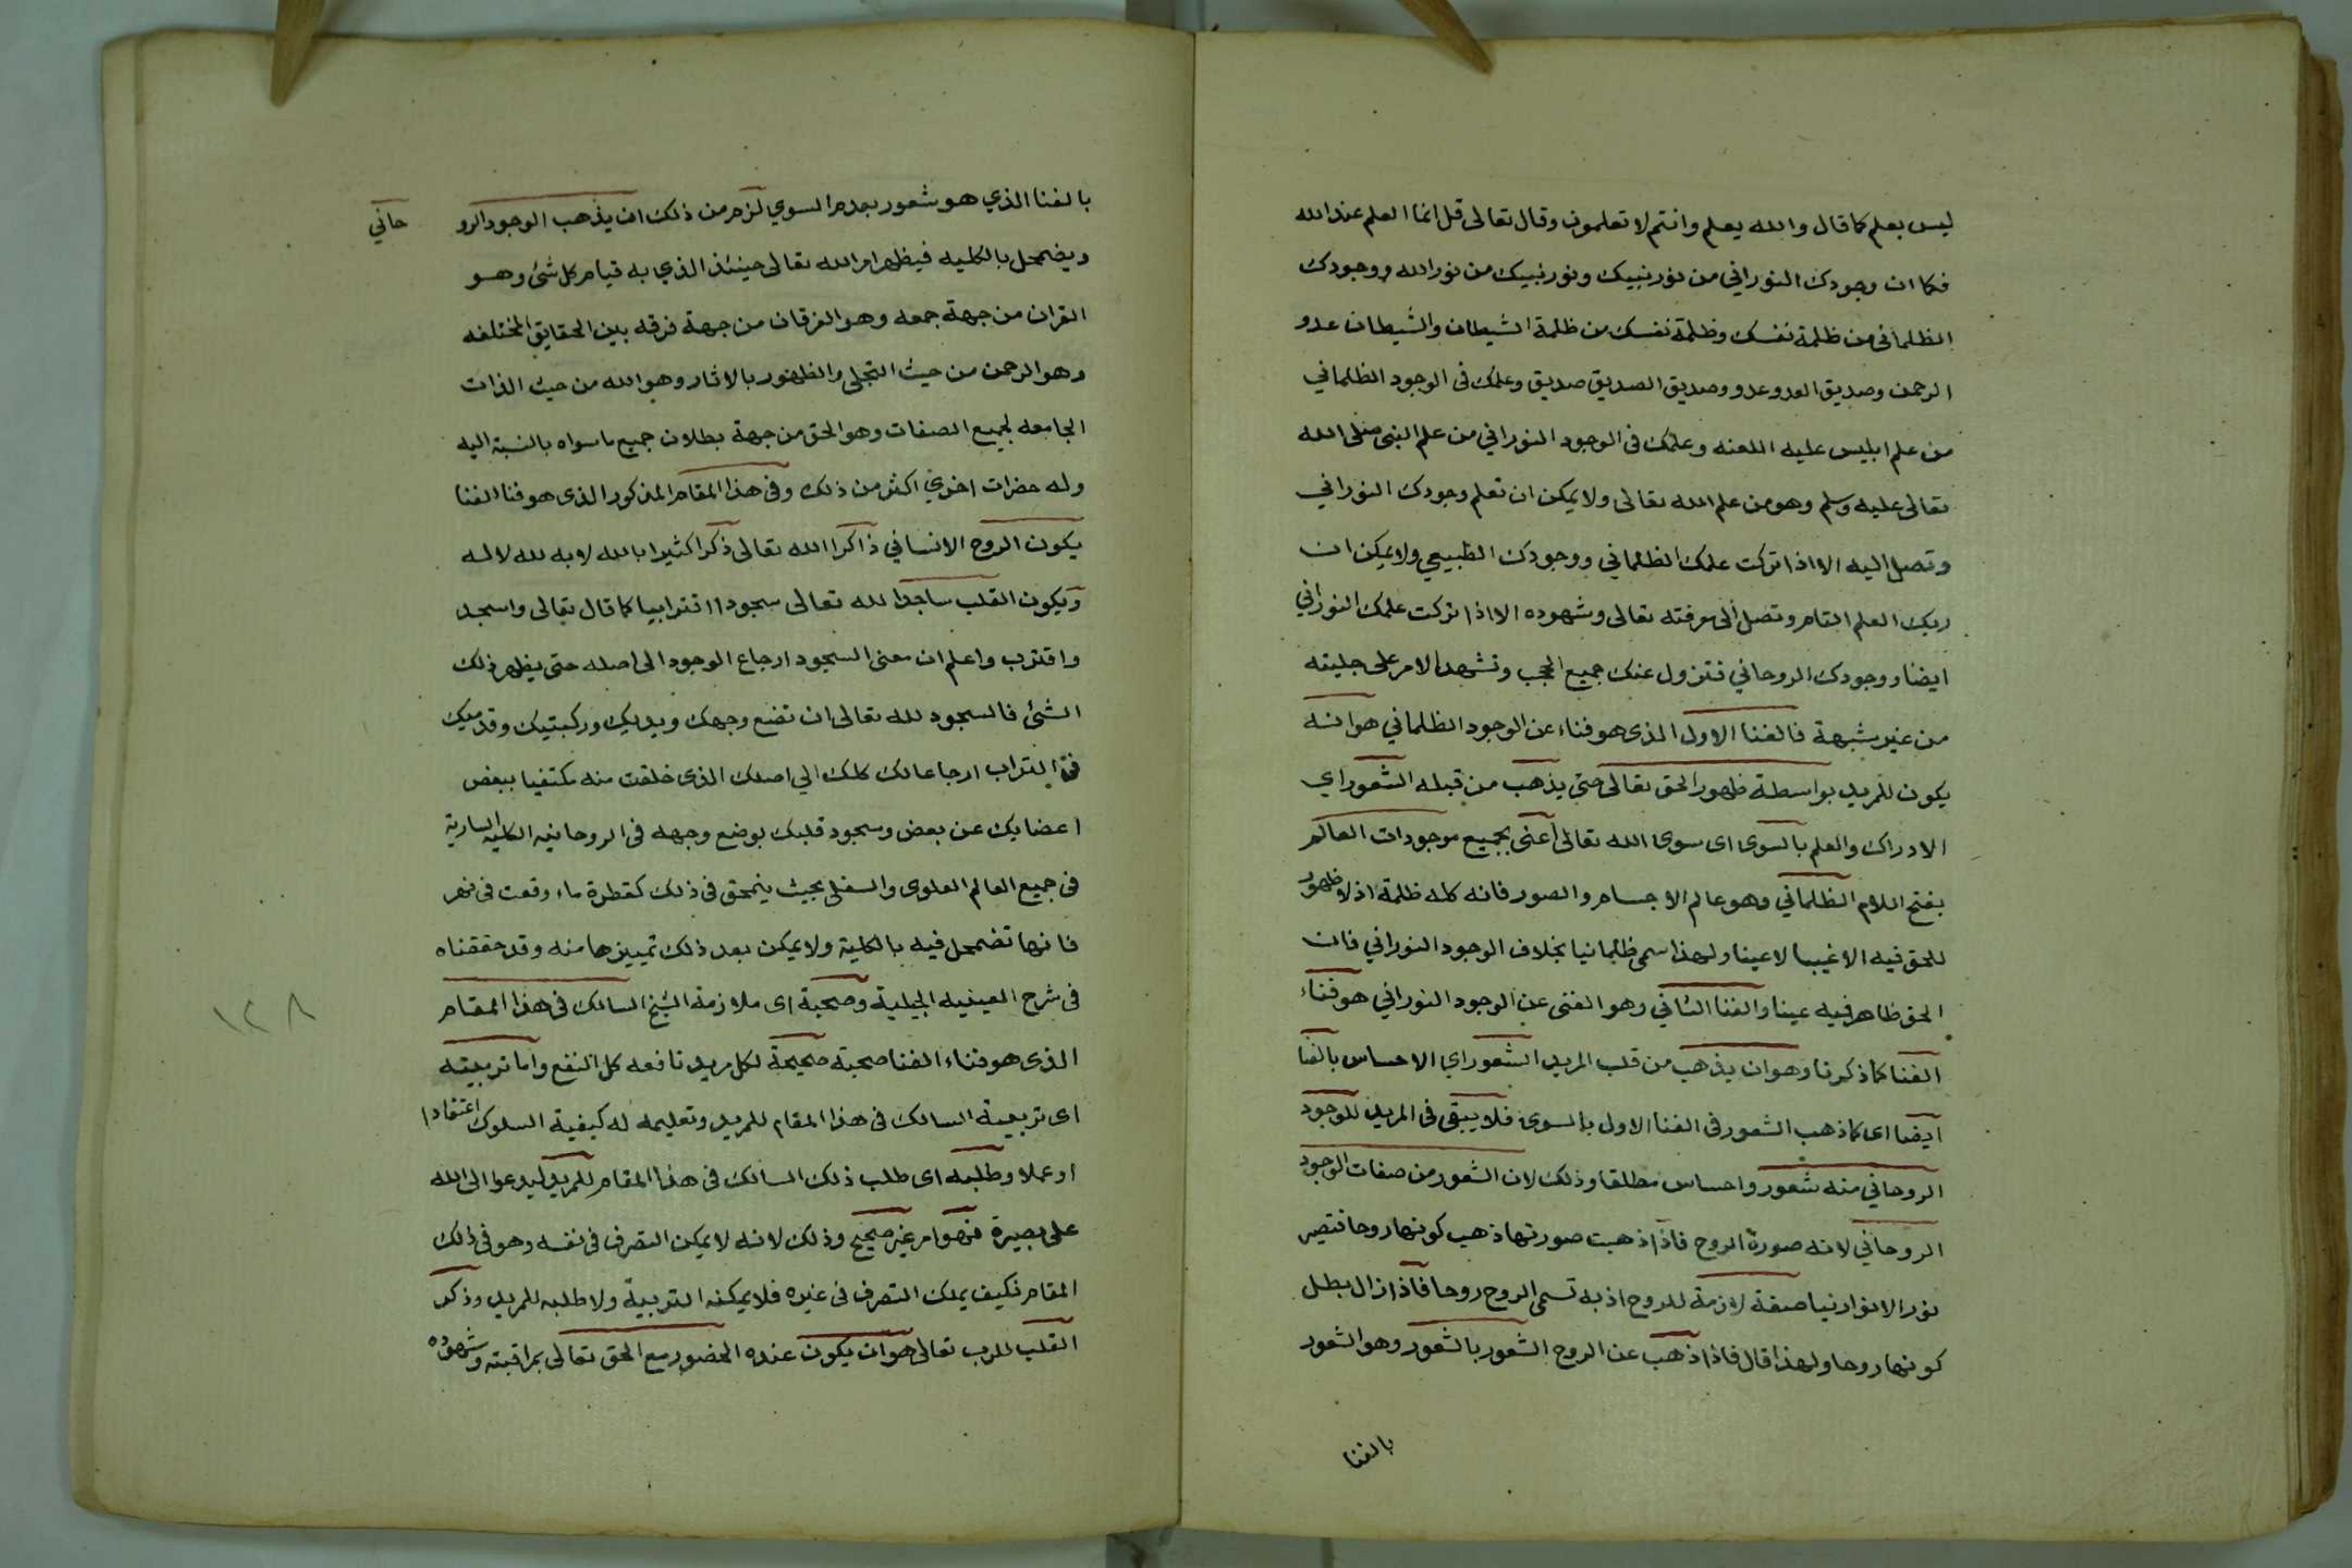 ليس بعلم كما قال والله يعلم وانتم لا تعلمون وقال تعالى قل انما العلم عند الله
فكما ان وجودك النوراني من نور نبيك ونور نبيك من نور الله ووجودك
الظلماني من ظلمة نفسك وظلمة نفسك من ظلمة الشيطان والشيطان عدو
الرحمن وصديق العدو عدو وصديق الصديق صديق وعلمك فى الوجود الظلماني
من علم ابليس عليه اللعنه وعلمك فى الوجود النوراني من علم النبي صلى الله
تعالى عليه وسلم وهو من علم الله تعالى ولا يمكن ان تعلم وجودك النوراني
وتصل اليه الا اذا تركت علمك الظلماني ووجودك الطبيعي ولا يمكن ان
العلم التام وتصل الى معرفته تعالى وشهوده الا اذا تركت علمك النوراني
ايضا ووجودك الروحاني فتزول عنك جميع الحجب وتشهد الامر على جليته
من غير شبهة فالفنا الاول الذى هو فناء عن الوجود الظلماني هو انه
يكون للمريد بواسطة ظهور الحق تعالى حتى يذهب من قبله الشعور اي
الادراك والعلم بالسوى اى سوى الله تعالى اعنى بجميع موجودات العالم
بفتح اللام الظلماني وهو عالم الاجسام والصور فانه كله ظلمة اذ لا ظهور
للحق فيه الا غيبا لا عينا ولهذا سمى ظلمانيا بخلاف الوجود النوراني فان
الحق ظاهر فيه عينا والفنا الثاني وهو الفنى عن الوجود النوراني هو فناء
الفنا كما ذكرنا وهو ان يذهب من قلب المريد الشعور اي الاحساس بالفنا
ايضا اى كما ذهب الشعور فى الفنا الاول بالسوى فلا يبقى فى المريد للوجود
الروحاني منه شعور واحساس مطلقا وذلك لان الشعور من صفات الوجود
الروحاني لانه صورة الروح فاذا ذهبت صورتها ذهب كونها روحا فتصير
نور الانوار نيا صفة لازمة للروح اذ به تسمى الروح روحا فاذا زال بطل
كونها روحا ولهذا قال فاذا ذهب عن الروح الشعور بالشعور وهو الشعور
بالفنا
بالفنا الذي هو شعور بعدم السوي لزم من ذلك ان يذهب الوجود الرو حاني
ويضمحل بالكليه فيظهر امر الله تعالى حينئذ الذي به قيام كل شئ وهو
القران من جهة جمعه وهو الفرقان من جهة فرقه بين الحقايق المختلفه
وهو الرحمن من حيث التجلي والظهور بالاثار وهو الله من حيث الذات
الجامعه لجميع الصفات وهو الحق من جهة بطلان جميع ما سواه بالنسبة اليه
وله حضرات اخري اكثر من ذلك وفى هذا المقام المذكور الذى هو فنا الفنا
يكون الروح الانساني ذاكرا الله تعالى ذكرا كثيرا بالله لا به لله لا له
ويكون القلب ساجدا لله تعالى سجودا اقترابيا كما قال تعالى واسجد
واقترب واعلم ان معنى السجود ارجاع الوجود الى اصله حتى يظهر ذلك
الشئ فالسجود لله تعالى ان تضع وجهك ويديك وركبتيك وقدميك
فى التراب ارجاعا لك كلك الي اصلك الذى خلقت منه مكتفيا ببعض
اعضايك عن بعض وسجود قلبك بوضع وجهه فى الروحانيه الكليه السارية
فى جميع العالم العلوى والسفلي بحيث ينمحق فى ذلك كقطرة ماء وقعت فى نهر
فانها تضمحل فيه بالكلية ولا يمكن بعد ذلك تمييزها منه وقد حققناه
فى شرح العينيه الجيلية وصحبة اى ملازمة الشيخ السالك فى هذا المقام
الذى هو فناء الفنا صحبة صحيحة لكل مريد نافعه كل النفع واما تربيته
اى تربية السالك فى هذا المقام للمريد وتعليمه له كيفية السلوك اعتقادا
او عملا وطلبه اى طلب ذلك السالك فى هذا المقام للمريد ليدعوا الى الله
على بصيرة فهو امر غير صحيح وذلك لانه لا يمكن التصرف فى نفسه وهو فى ذلك
المقام فكيف يملك التصرف فى غيره فلا يمكنه التربية ولا طلبه للمريد وذكر
القلب للرب تعالى هو ان يكون عنده الحضور مع الحق تعالى بمراقبته وشهوده
١٢٨